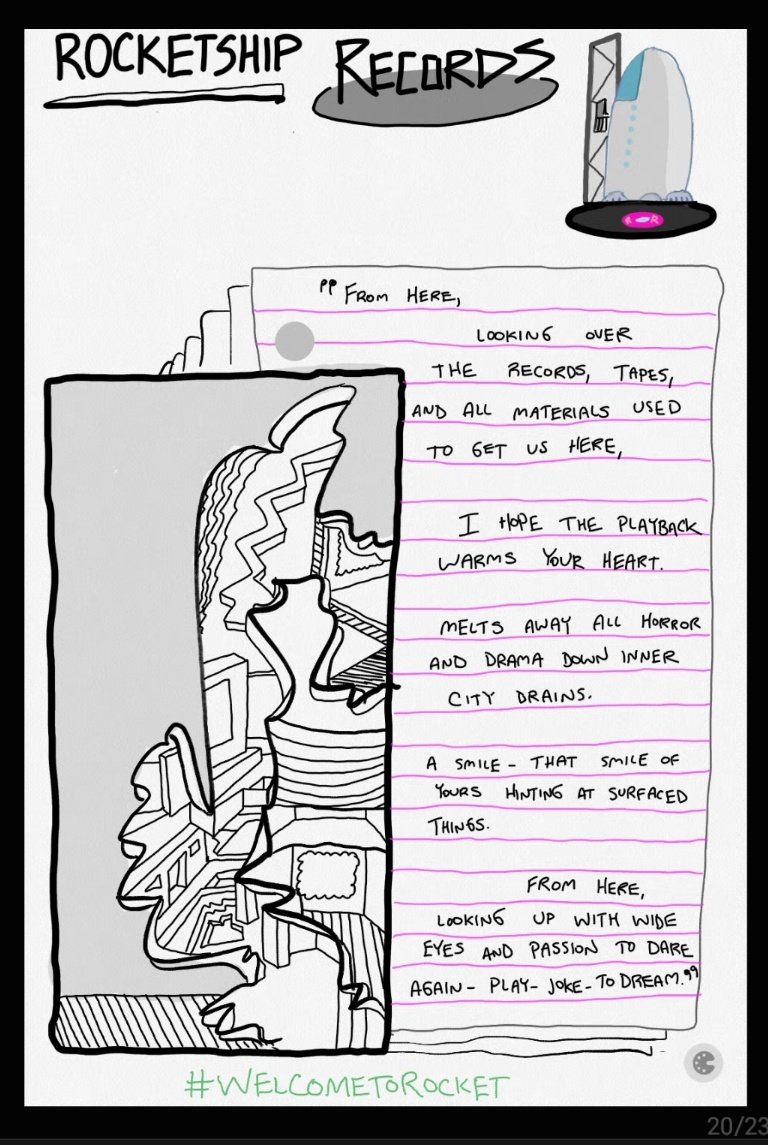 ROCKETSHIP RECORDS
R R
"From HERE,
LOOKING OVER
THE RECORDS, TAPES,
AND ALL MATERIALS USED
TO GET US HERE,
I HOPE THE PLAYBACK
WARMS YOUR HEART.
MELTS AWAY ALL HORROR
AND DRAMA DOWN INNER
CITY DRAINS.
A SMILE - THAT SMILE OF
YOURS HINTING AT SURFACED
THINGS.
FROM HERE,
LOOKING UP WITH WIDE
EYES AND PASSION TO DARE
AGAIN - PLAY - JOKE - TO DREAM."
#WELCOMETOROCKET
20/23